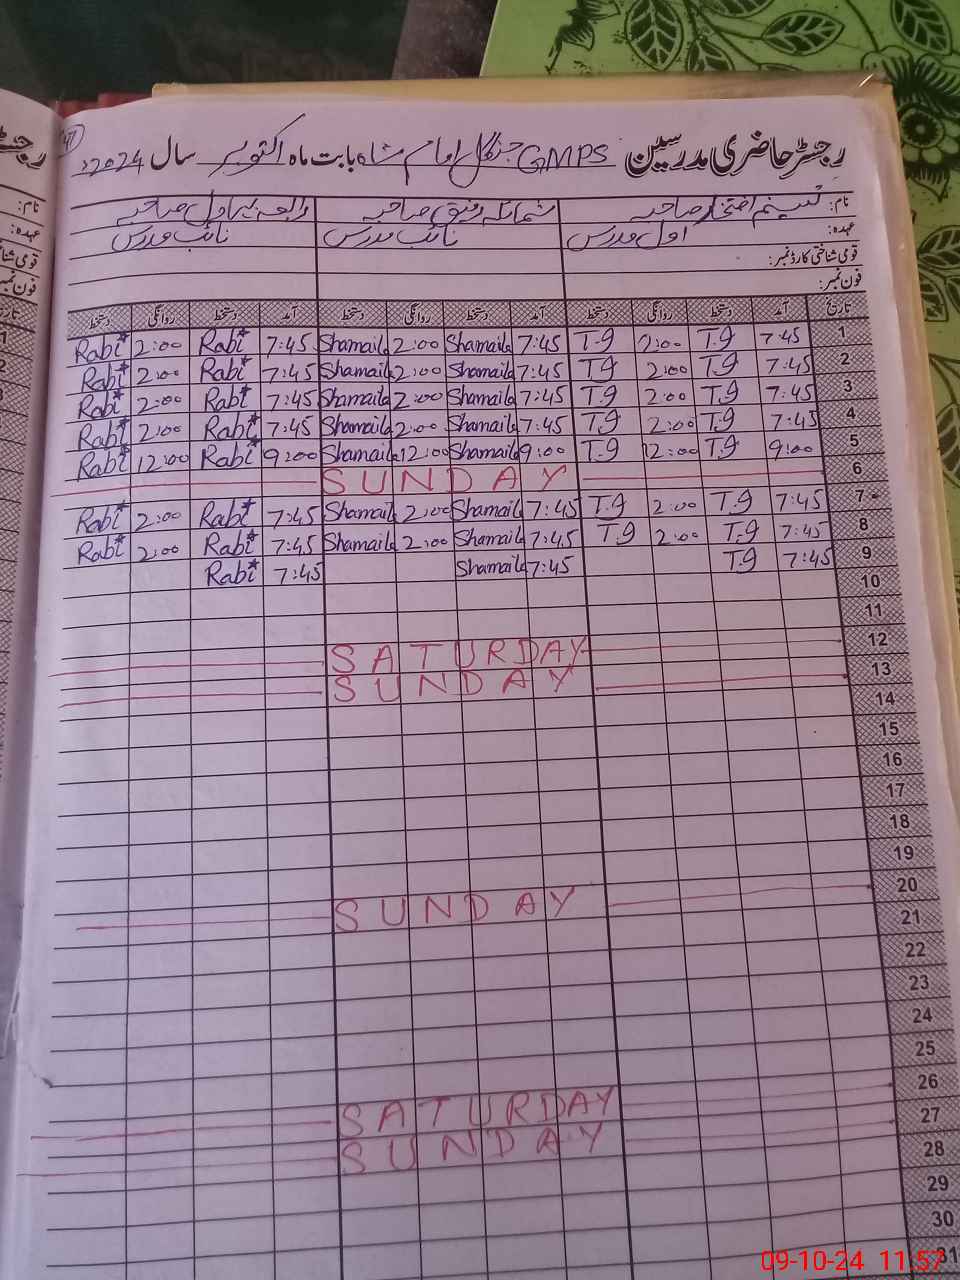 41
رجسٹر حاضری مدرسین GMPS جنگل امام شاہ بابت ماہ اکتوبر سال 2024ء
نام: تسنیم اختر صاحبہ شمائلہ رفیق صاحبہ رابعہ صاحبہ
عہدہ: اول مدرس نائب مدرس نائب مدرس
قومی شناختی کارڈ نمبر:
فون نمبر:
تاریخ آمد دستخط روانگی دستخط آمد دستخط روانگی دستخط آمد دستخط روانگی دستخط
1 7:45 T.g 2:00 T.g 7:45 Shamaila 2:00 Shamaila 7:45 Rabi 2:00 Rabi
2 7:45 T.g 2:00 T.g 7:45 Shamaila 2:00 Shamaila 7:45 Rabi 2:00 Rabi
3 7:45 T.g 2:00 T.g 7:45 Shamaila 2:00 Shamaila 7:45 Rabi 2:00 Rabi
4 7:45 T.g 2:00 T.g 7:45 Shamaila 2:00 Shamaila 7:45 Rabi 2:00 Rabi
5 9:00 T.g 12:00 T.g 9:00 Shamaila 12:00 Shamaila 9:00 Rabi 12:00 Rabi
6 SUNDAY
7 7:45 T.g 2:00 T.g 7:45 Shamaila 2:00 Shamaila 7:45 Rabi 2:00 Rabi
8 7:45 T.g 2:00 T.g 7:45 Shamaila 2:00 Shamaila 7:45 Rabi 2:00 Rabi
9 7:45 T.g 7:45 Shamaila 7:45 Rabi
10
11
12 SATURDAY
13 SUNDAY
14
15
16
17
18
19
20 SUNDAY
21
22
23
24
25
26 SATURDAY
27 SUNDAY
28
29
30
31
09-10-24 11:57